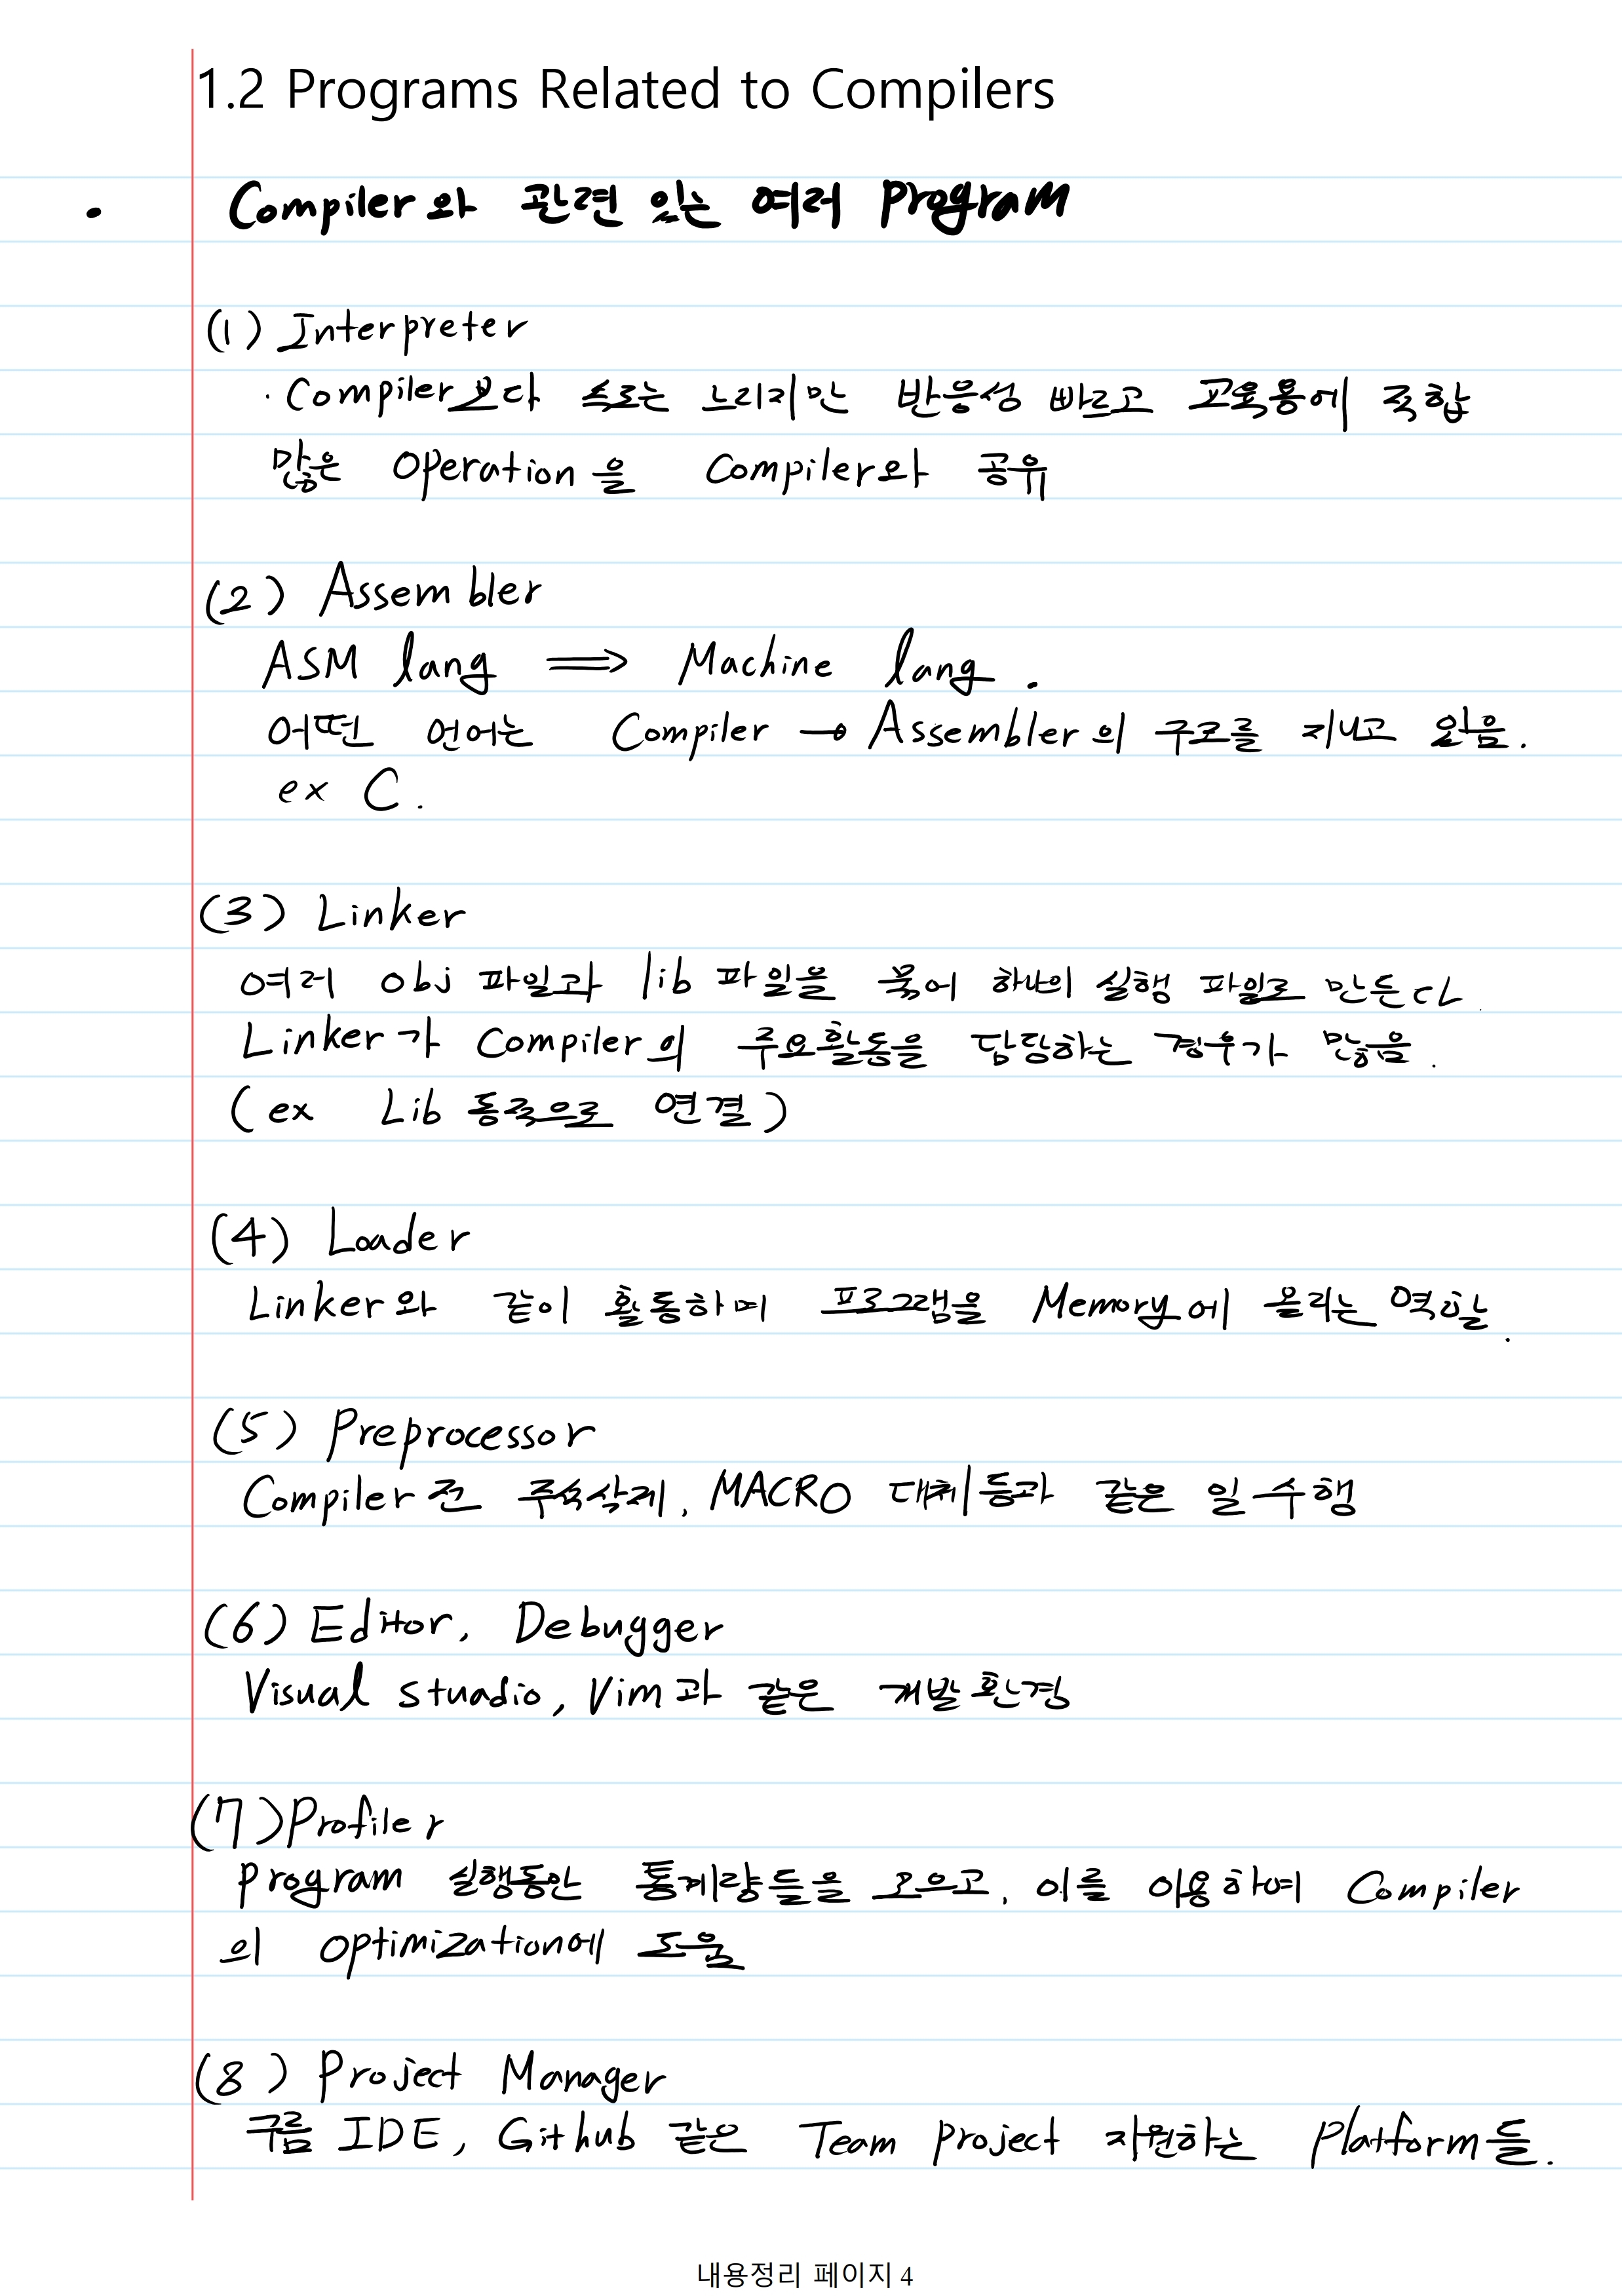 1.2 Programs Related to Compilers
• Compiler와 관련 있는 여러 Program
(1) Interpreter
· Compiler보다 속도는 느리지만 반응성 빠르고 교육용에 적합
많은 Operation을 Compiler와 공유
(2) Assembler
ASM lang ⟹ Machine lang.
어떤 언어는 Compiler → Assembler의 구조를 지니고 있음.
ex C.
(3) Linker
여러 obj 파일과 lib 파일을 묶어 하나의 실행 파일로 만든다.
Linker가 Compiler의 주요활동을 담당하는 경우가 많음.
(ex Lib 동적으로 연결)
(4) Loader
Linker와 같이 활동하며 프로그램을 Memory에 올리는 역할.
(5) Preprocessor
Compiler 전 주석삭제, MACRO 대체등과 같은 일 수행
(6) Editor, Debugger
Visual studio, Vim과 같은 개발환경
(7) Profiler
Program 실행동안 통계량들을 모으고, 이를 이용하여 Compiler
의 optimization에 도움
(8) Project Manager
구름 IDE, Github 같은 Team project 지원하는 Platform들.
내용정리 페이지 4